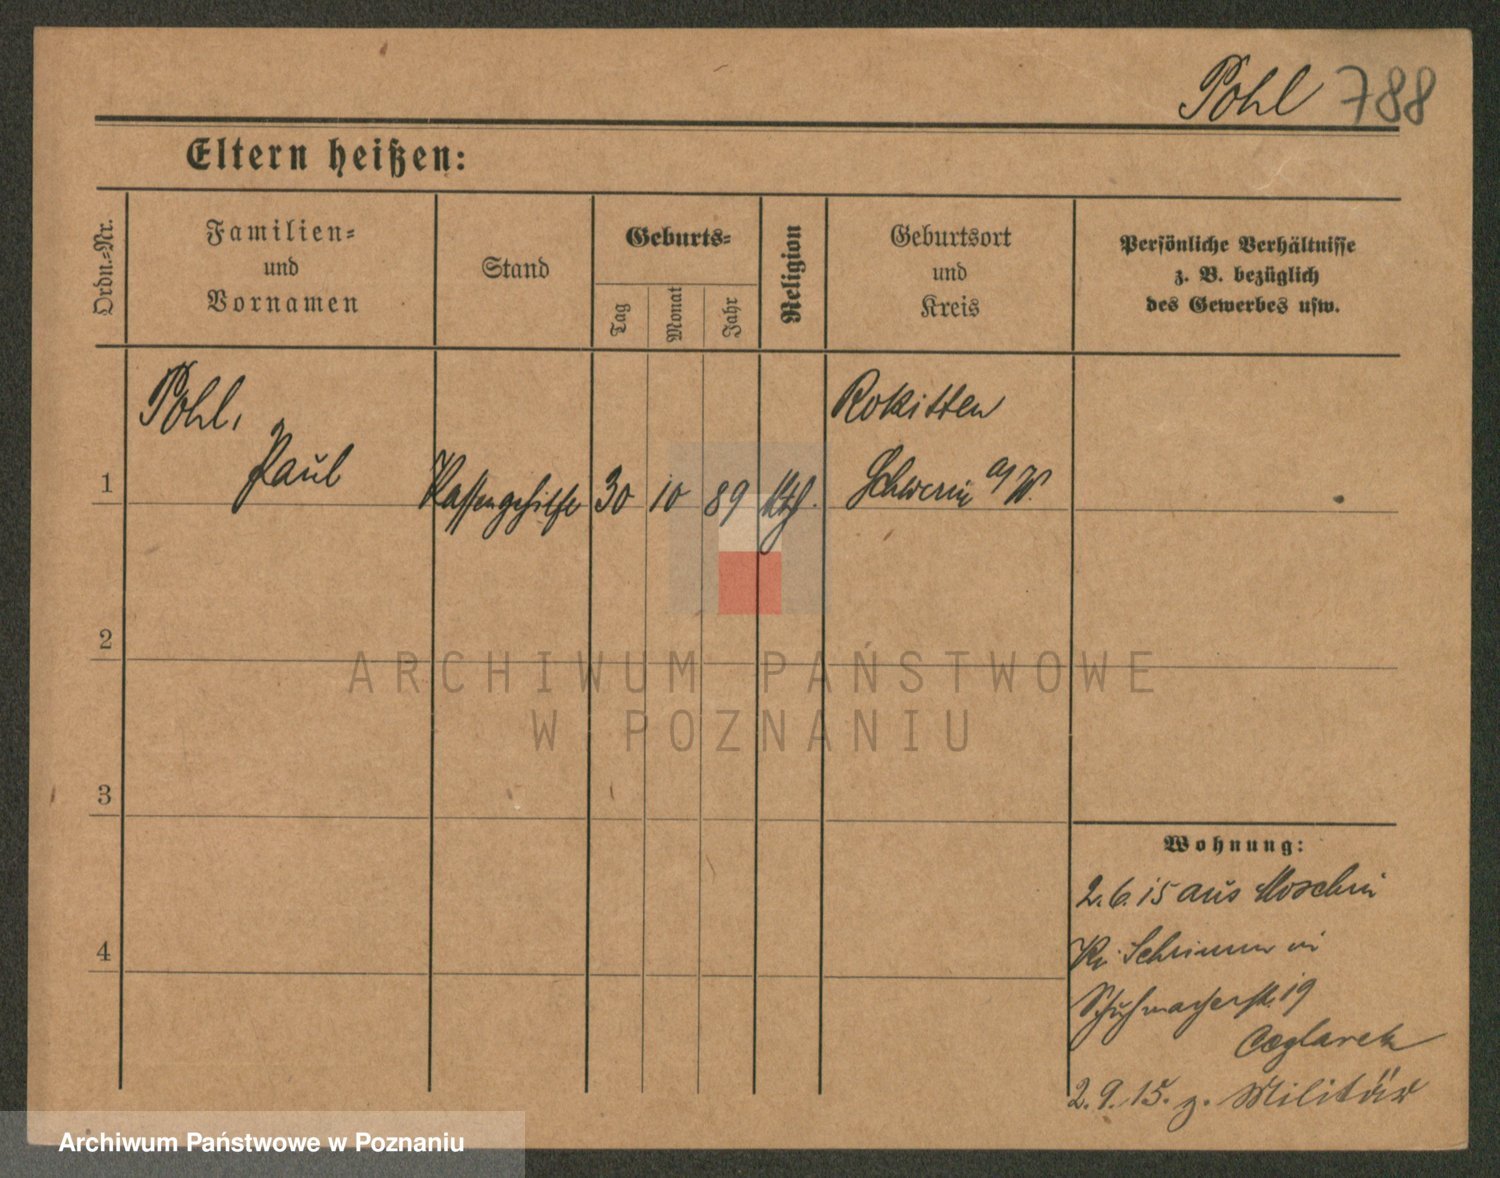 Pohl 788
Eltern heißen:
Ordn.-Nr.
Familien-
und
Vornamen
Stand
Geburts-
Tag
Monat
Jahr
Religion
Geburtsort
und
Kreis
Persönliche Verhältnisse
z. B. bezüglich
des Gewerbes usw.
Pohl,
Paul
1
Kassengehilfe
30
10
89
Kth.
Rokitten
Schwerin a/W.
2
3
4
Wohnung:
2.6.15 aus Moschin
Kr. Schrimm in
Schuhmacherstr. 19
Coeglarek
2.9.15. z. Militär
ARCHIWUM PAŃSTWOWE
W POZNANIU
Archiwum Państwowe w Poznaniu